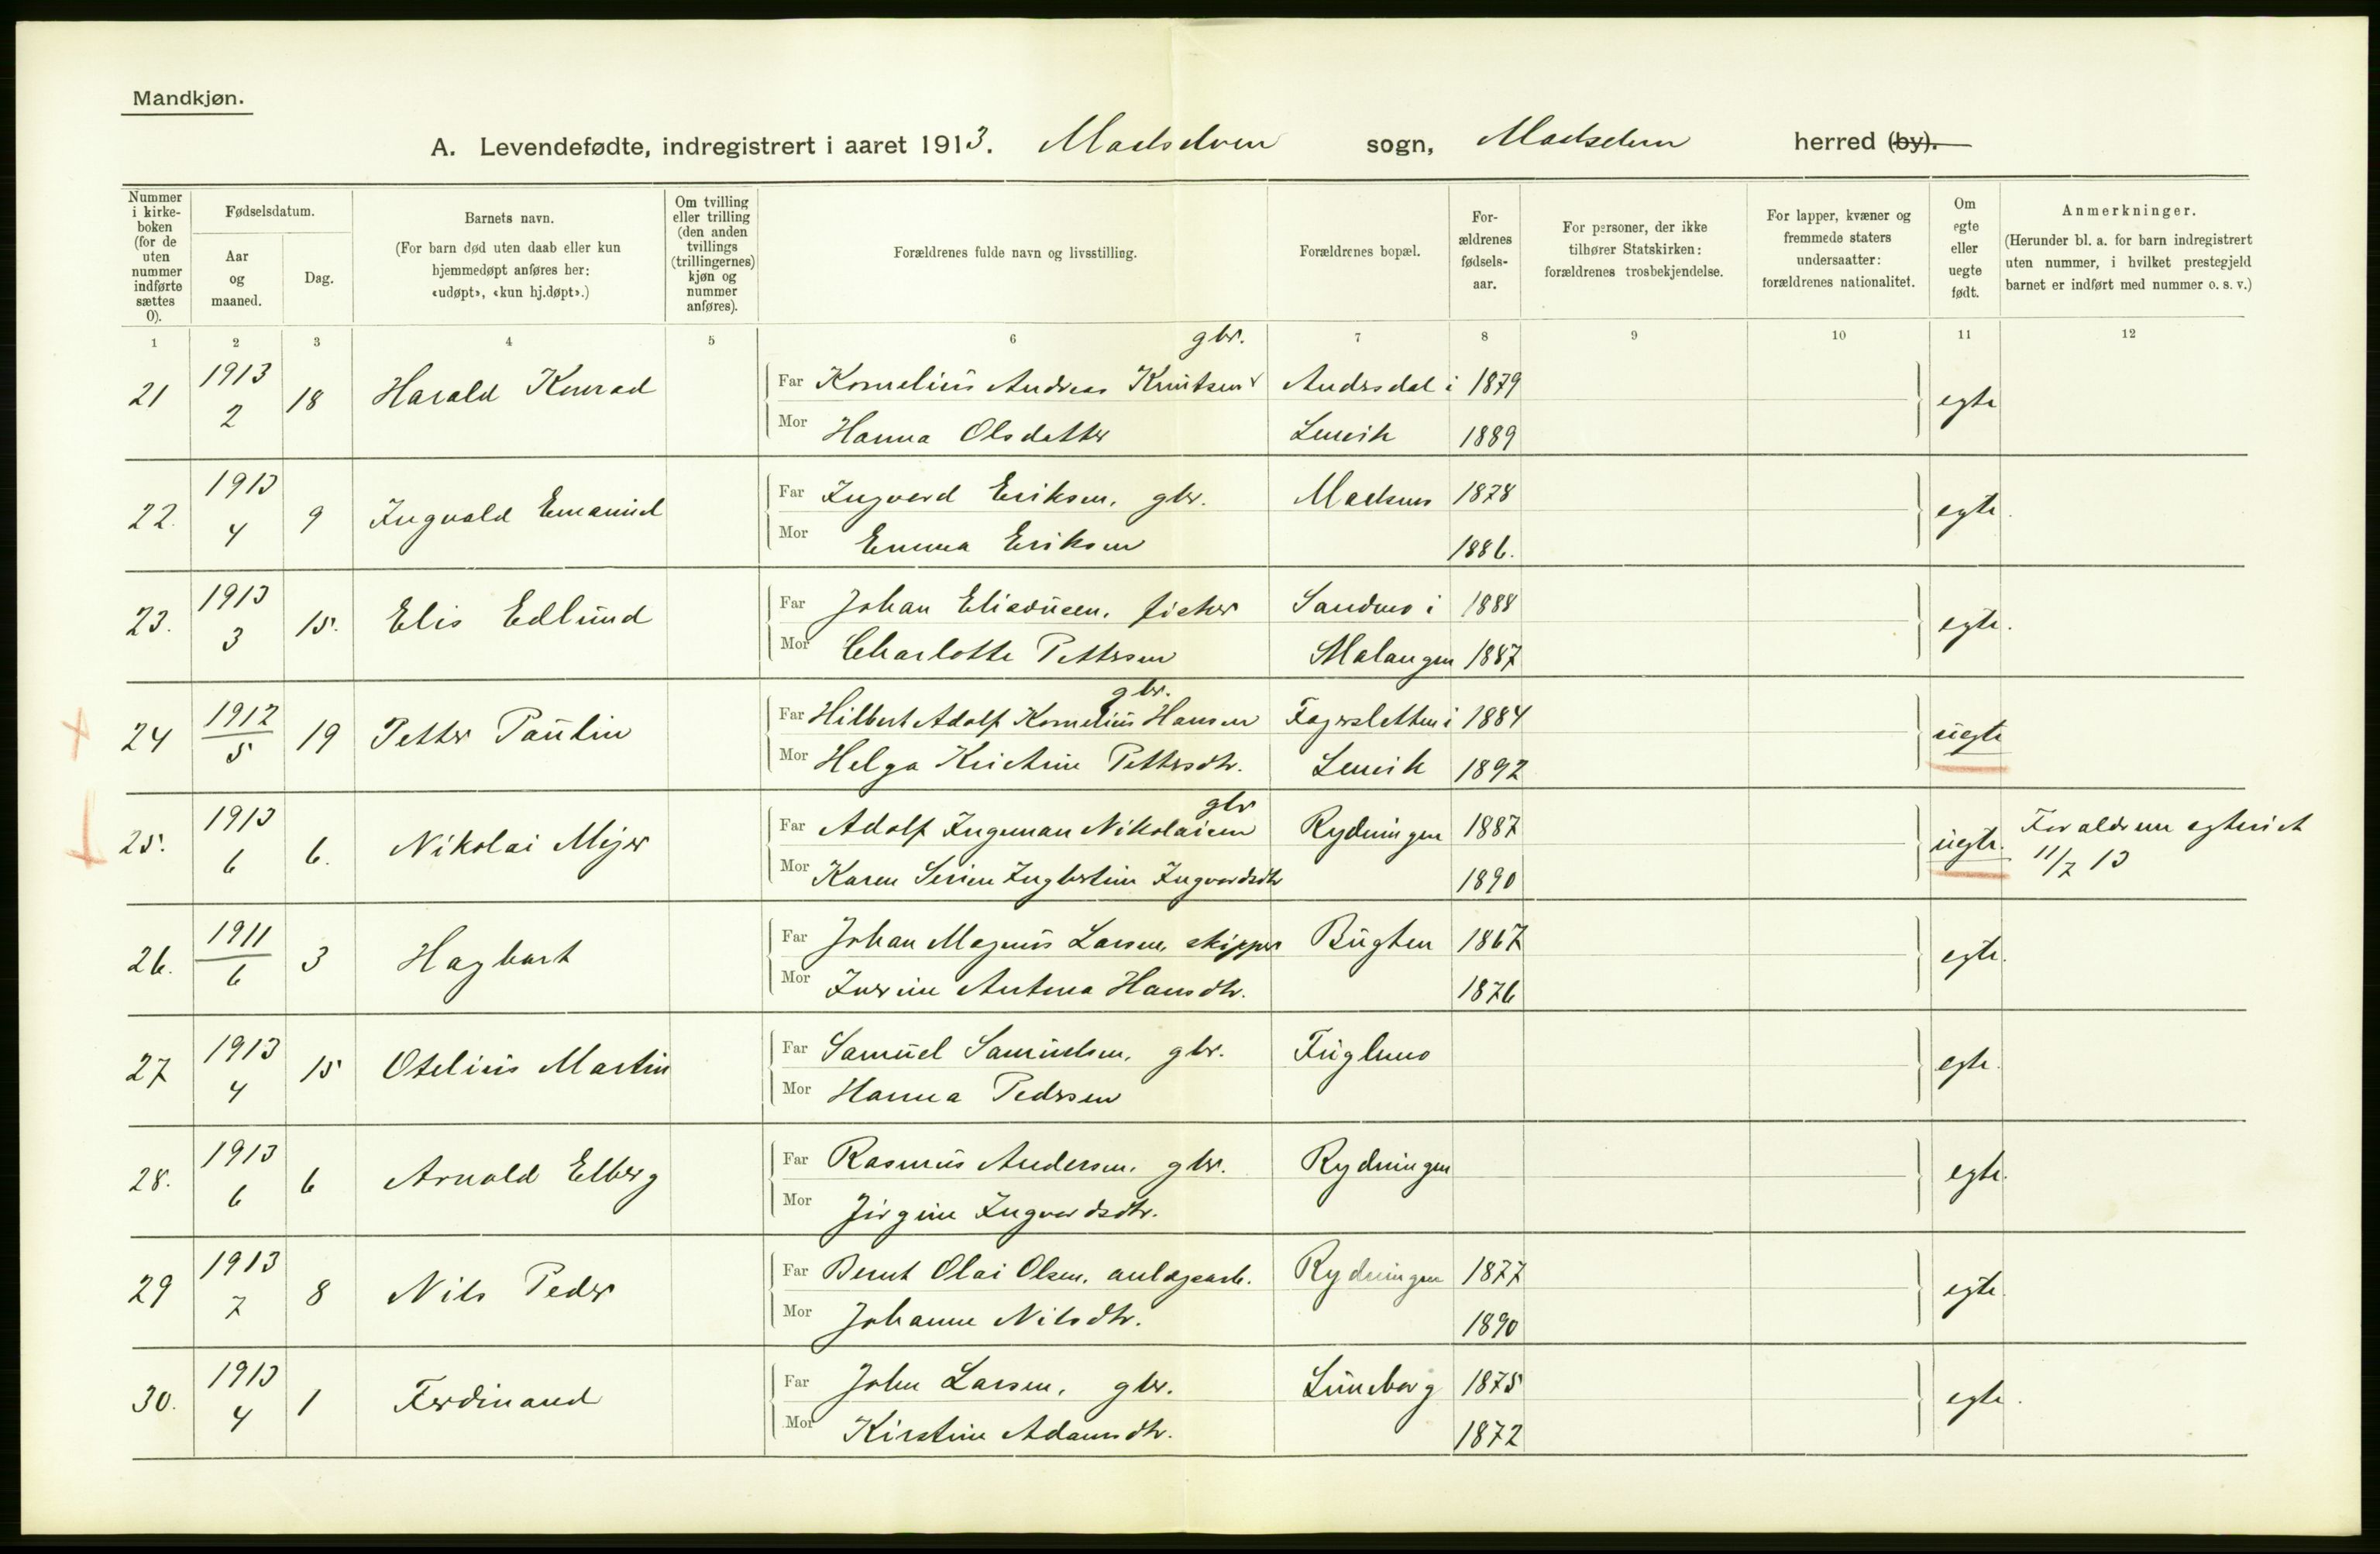 Mandkjøn.
A. Levendefødte, indregistrert i aaret 1913. Maalselven sogn, Maalselven herred (by).
Nummer i kirke-boken (for de uten nummer indførte sættes 0).
Fødselsdatum.
Aar og maaned.
Dag.
Barnets navn.
(For barn død uten daab eller kun hjemmedøpt anføres her: «udøpt», «kun hj.døpt».)
Om tvilling eller trilling (den anden tvillings (trillingernes) kjøn og nummer anføres).
Forældrenes fulde navn og livsstilling.
Forældrenes bopæl.
For-ældrenes fødsels-aar.
For personer, der ikke tilhører Statskirken: forældrenes trosbekjendelse.
For lapper, kvæner og fremmede staters undersaatter: forældrenes nationalitet.
Om egte eller uegte født.
Anmerkninger.
(Herunder bl. a. for barn indregistrert uten nummer, i hvilket prestegjeld barnet er indført med nummer o. s. v.)
1 2 3 4 5 6 7 8 9 10 11 12
gbr.
21 1913 2 18 Harald Konrad Far Kornelius Andreas Knutsen Andersdal i 1879 egte
Mor Hanna Olsdatter Lenvik 1889
22. 1913 4 9 Ingvald Emanuel Far Ingvard Eriksen, gbr. 1878 egte.
Mor Emma Eriksen 1886.
23. 1913 3 15. Elis Edlund Far Johan Eliasusen, fisker Sandmo i 1888 egte.
Mor Charlotte Pettersen Malangen 1887
gbr.
24 1912 5 19 Petter Paulin Far Hilbert Adolf Kornelius Hansen Fagersletten i 1884 uegte
Mor Helga Kristine Pettersdtr. Lenvik 1892
gbr
25. 1913 6 6. Nikolai Mejer Far Adolf Ingeman Nikolaisen Rydningen 1887 uegte. Forældrene egteviet
Mor Karen Serine Ingbertine Ingvardsdtr 1890 11/7 13
26. 1911 6 3 Hagbart Far Johan Magnus Larsen, skipper Bugten 1867 egte.
Mor Iverine Antona Hansdtr. 1876
27 1913 4 15 Otelius Martin Far Samuel Samuelsen, gbr. Fuglmo egte.
Mor Hanna Pedersen
28. 1913 6 6 Arnold Elberg Far Rasmus Andersen, gbr. Rydningen egte.
Mor Jørgine Ingvardsdtr.
29 1913 7 8 Nils Peder Far Bernt Olai Olsen, anlægsarb. Rydningen 1877 egte.
Mor Johanne Nilsdtr. 1890
30. 1913 4 1 Ferdinand Far John Larsen, gbr. Luneborg 1875 egte.
Mor Kirstine Adamsdtr. 1872